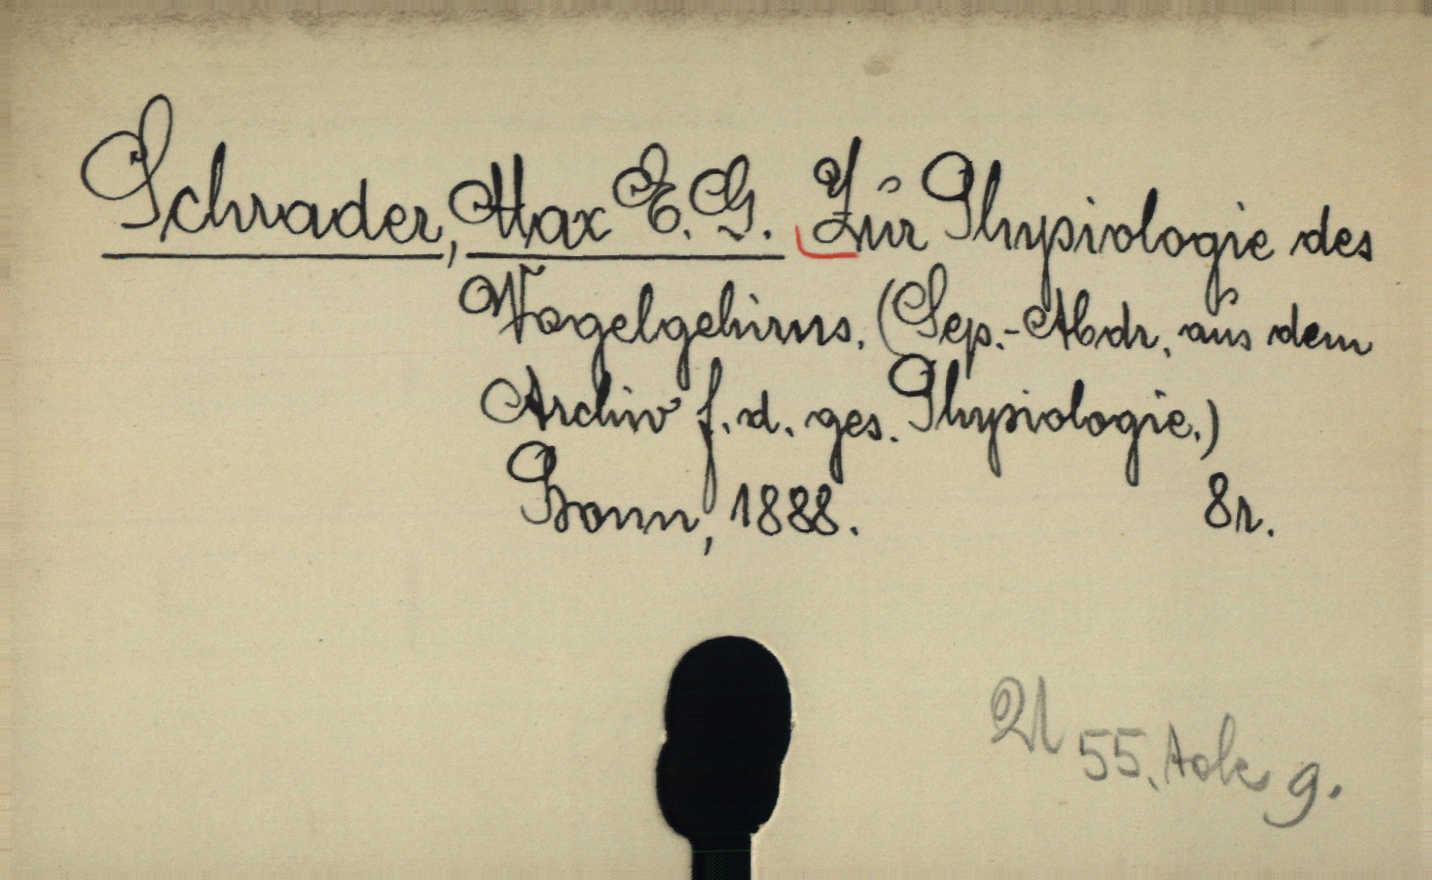 Schrader, Max E. G. Zur Physiologie des
Vogelgehirns. (Sep.-Abdr. aus dem
Archiv f. d. ges. Physiologie.)
Bonn, 1888. 8r.
55. g.